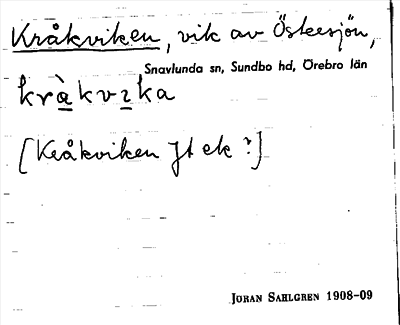 Kråkviken, vik av Östersjön,
Snavlunda sn, Sundbo hd, Örebro län
kràkvika
[Kråkviken Jt ek ?]
JORAN SAHLGREN 1908-09